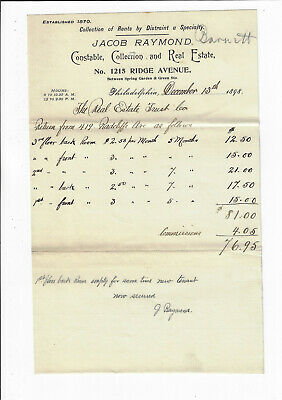 ESTABLISHED 1870.
Collection of Rents by Distraint a Specialty.
Barnett
JACOB RAYMOND,
Constable, Collection and Real Estate,
No. 1215 RIDGE AVENUE,
Between Spring Garden & Green Sts.
HOURS:
Philadelphia, December 15th 1898.
The Real Estate Trust Co
Return from 419 Radcliffe Ave as follows
3rd floor back Room @ $2.50 per Month 5 Months $ 12.50
" " front " " 3 " 5 " 15.00
2nd " front " " 3 " 7. " 21.00
" " back " " 2.50 " 7 " 17.50
1st " front " " 3 " 5. " 15.00
$81.00
Commissions 4.05
76.95
1st floor back Room empty for some time new tenant
now secured
J Raymond